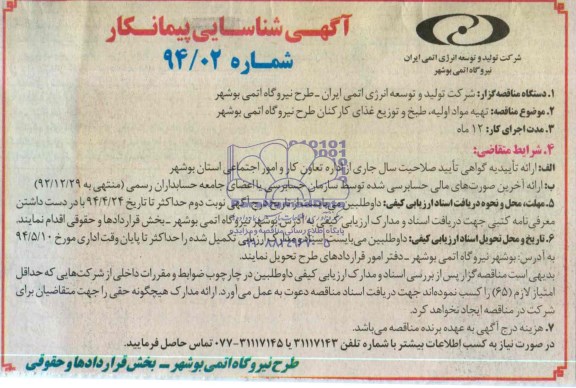 آگهی شناسایی پیمانکار
شماره ۹۴/۰۲
شرکت تولید و توسعه انرژی اتمی ایران
نیروگاه اتمی بوشهر
۱. دستگاه مناقصه‌گزار: شرکت تولید و توسعه انرژی اتمی ایران ـ طرح نیروگاه اتمی بوشهر
۲. موضوع مناقصه: تهیه مواد اولیه، طبخ و توزیع غذای کارکنان طرح نیروگاه اتمی بوشهر
۳. مدت اجرای کار: ۱۲ ماه
۴. شرایط متقاضی:
الف: ارائه تأییدیه گواهی تأیید صلاحیت سال جاری از اداره تعاون کار و امور اجتماعی استان بوشهر
ب: ارائه آخرین صورت‌های مالی حسابرسی شده توسط سازمان حسابرسی یا اعضای جامعه حسابداران رسمی (منتهی به ۹۲/۱۲/۲۹)
۵. مهلت، محل و نحوه دریافت اسناد ارزیابی کیفی: داوطلبین می‌بایست از تاریخ درج آگهی نوبت دوم حداکثر تا تاریخ ۹۴/۴/۲۴ با در دست داشتن
معرفی‌نامه کتبی جهت دریافت اسناد و مدارک ارزیابی کیفی به آدرس بوشهر نیروگاه اتمی بوشهر ـ بخش قراردادها و حقوقی اقدام نمایند.
۶. تاریخ و محل تحویل اسناد ارزیابی کیفی: داوطلبین می‌بایست اسناد و مدارک ارزیابی تکمیل شده را حداکثر تا پایان وقت اداری مورخ ۹۴/۵/۱۰
به آدرس: بوشهر نیروگاه اتمی بوشهر ـ دفتر امور قراردادهای طرح تحویل نمایند.
بدیهی است مناقصه‌گزار پس از بررسی اسناد و مدارک ارزیابی کیفی داوطلبین در چارچوب ضوابط و مقررات داخلی از شرکت‌هایی که حداقل
امتیاز لازم (۶۵) را کسب نموده‌اند جهت دریافت اسناد مناقصه دعوت به عمل می‌آورد. ارائه مدارک هیچگونه حقی را جهت متقاضیان برای
شرکت در مناقصه ایجاد نخواهد کرد.
۷. هزینه درج آگهی به عهده برنده مناقصه می‌باشد.
در صورت نیاز به کسب اطلاعات بیشتر با شماره تلفن ۳۱۱۱۷۱۴۳ یا ۳۱۱۱۷۱۴۵-۰۷۷ تماس حاصل فرمایید.
طرح نیروگاه اتمی بوشهر ـ بخش قراردادها و حقوقی